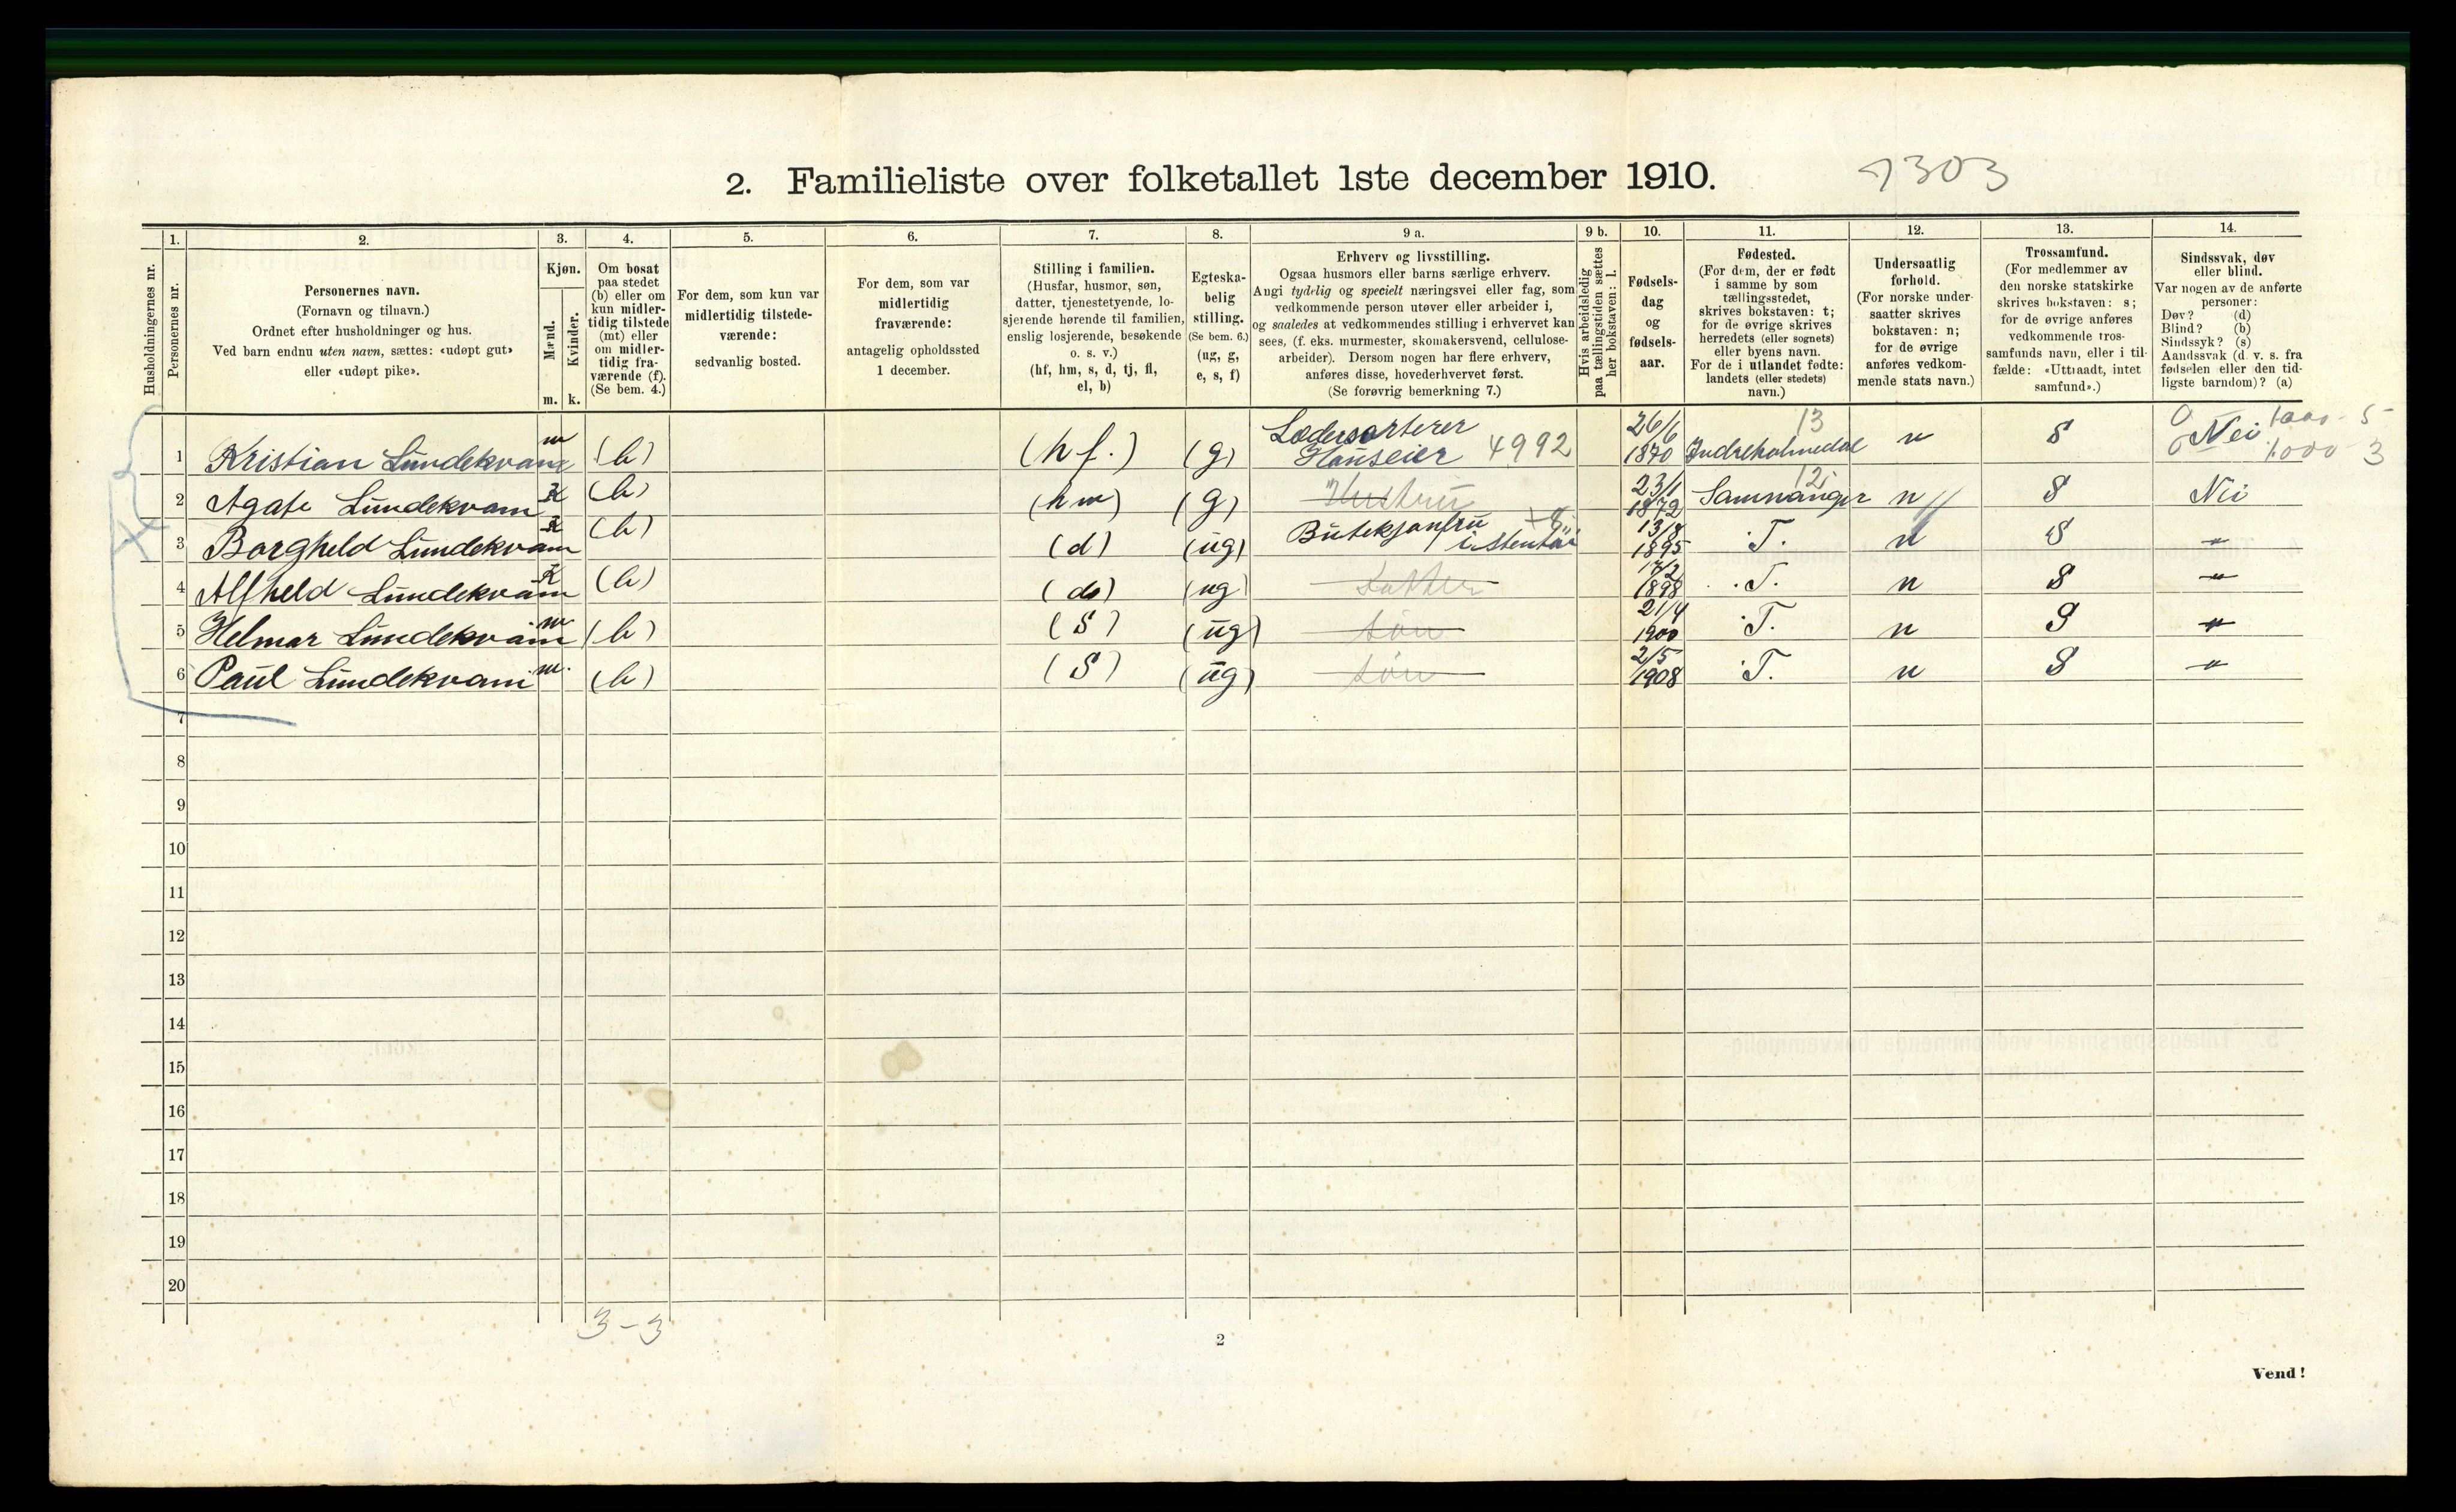 2. Familieliste over folketallet 1ste december 1910.
7303
Husholdningernes nr.
1.
Personernes nr.
2.
Personernes navn.
(Fornavn og tilnavn.)
Ordnet efter husholdninger og hus.
Ved barn endnu uten navn, sættes: «udøpt gut»
eller «udøpt pike».
3.
Kjøn.
Mænd.
Kvinder.
m.
k.
4.
Om bosat
paa stedet
(b) eller om
kun midler-
tidig tilstede
(mt) eller
om midler-
tidig fra-
værende (f).
(Se bem. 4.)
5.
For dem, som kun var
midlertidig tilstede-
værende:
sedvanlig bosted.
6.
For dem, som var
midlertidig
fraværende:
antagelig opholdssted
1 december.
7.
Stilling i familien.
(Husfar, husmor, søn,
datter, tjenestetyende, lo-
sjerende hørende til familien,
enslig losjerende, besøkende
o. s. v.)
(hf, hm, s, d, tj, fl,
el, b)
8.
Egteska-
belig
stilling.
(Se bem. 6.)
(ug, g,
e, s, f)
9 a.
Erhverv og livsstilling.
Ogsaa husmors eller barns særlige erhverv.
Angi tydelig og specielt næringsvei eller fag, som
vedkommende person utøver eller arbeider i,
og saaledes at vedkommendes stilling i erhvervet kan
sees, (f. eks. murmester, skomakersvend, cellulose-
arbeider). Dersom nogen har flere erhverv,
anføres disse, hovederhvervet først.
(Se forøvrig bemerkning 7.)
9 b.
Hvis arbeidsledig
paa tællingstiden sættes
her bokstaven: l.
10.
Fødsels-
dag
og
fødsels-
aar.
11.
Fødested.
(For dem, der er født
i samme by som
tællingsstedet,
skrives bokstaven: t;
for de øvrige skrives
herredets (eller sognets)
eller byens navn.
For de i utlandet fødte:
landets (eller stedets)
navn.)
12.
Undersaatlig
forhold.
(For norske under-
saatter skrives
bokstaven: n;
for de øvrige
anføres vedkom-
mende stats navn.)
13.
Trossamfund.
(For medlemmer av
den norske statskirke
skrives bokstaven: s;
for de øvrige anføres
vedkommende tros-
samfunds navn, eller i til-
fælde: «Uttraadt, intet
samfund».)
14.
Sindssvak, døv
eller blind.
Var nogen av de anførte
personer:
Døv? (d)
Blind? (b)
Sindssyk? (s)
Aandssvak (d. v. s. fra
fødselen eller den tid-
ligste barndom)? (a)
1 Kristian Lundekvam m (b) (hf.) (g) Lædersorterer Hauseier 4992 26/6 1870 Indreholmedal 13 n S Nei 1000 - 5 1000 3
2 Agate Lundekvam k (b) (hm) (g) Hustru 23/1 1872 Samnanger 12 n S Nei
3 Borgheld Lundekvam k (b) (d) (ug) Butekjomfru i stentøi 13/8 1895 T. n S "
4 Alfheld Lundekvam k (b) (d) (ug) Datter 17/2 1898 T. n S "
5 Helmar Lundekvam m (b) (S) (ug) søn 21/4 1900 T. n S "
6 Paul Lundekvam m. (b) (S) (ug) søn 2/5 1908 T. n S "
7
8
9
10
11
12
13
14
15
16
17
18
19
20
3-3
2
Vend!